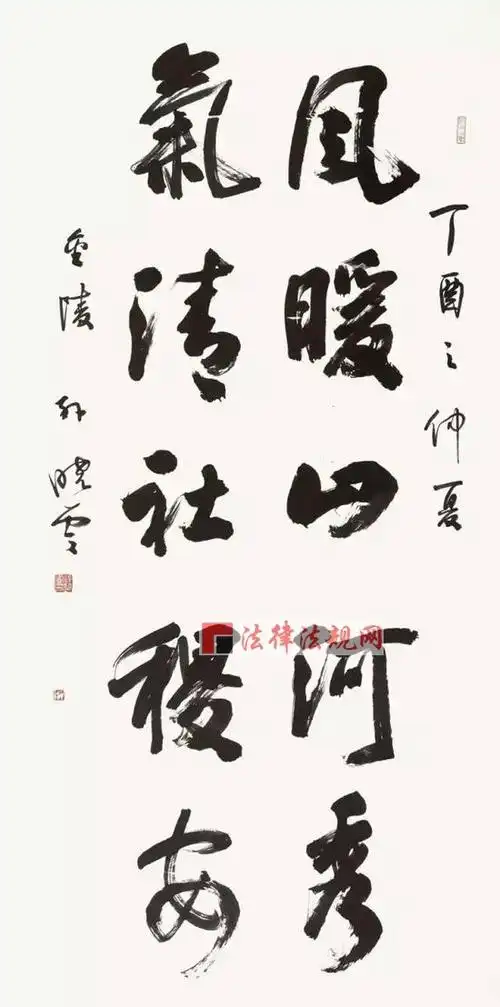 丁酉之仲夏
风暖山河秀
氣清社稷安
金陵 孙晓雲
法律法规网